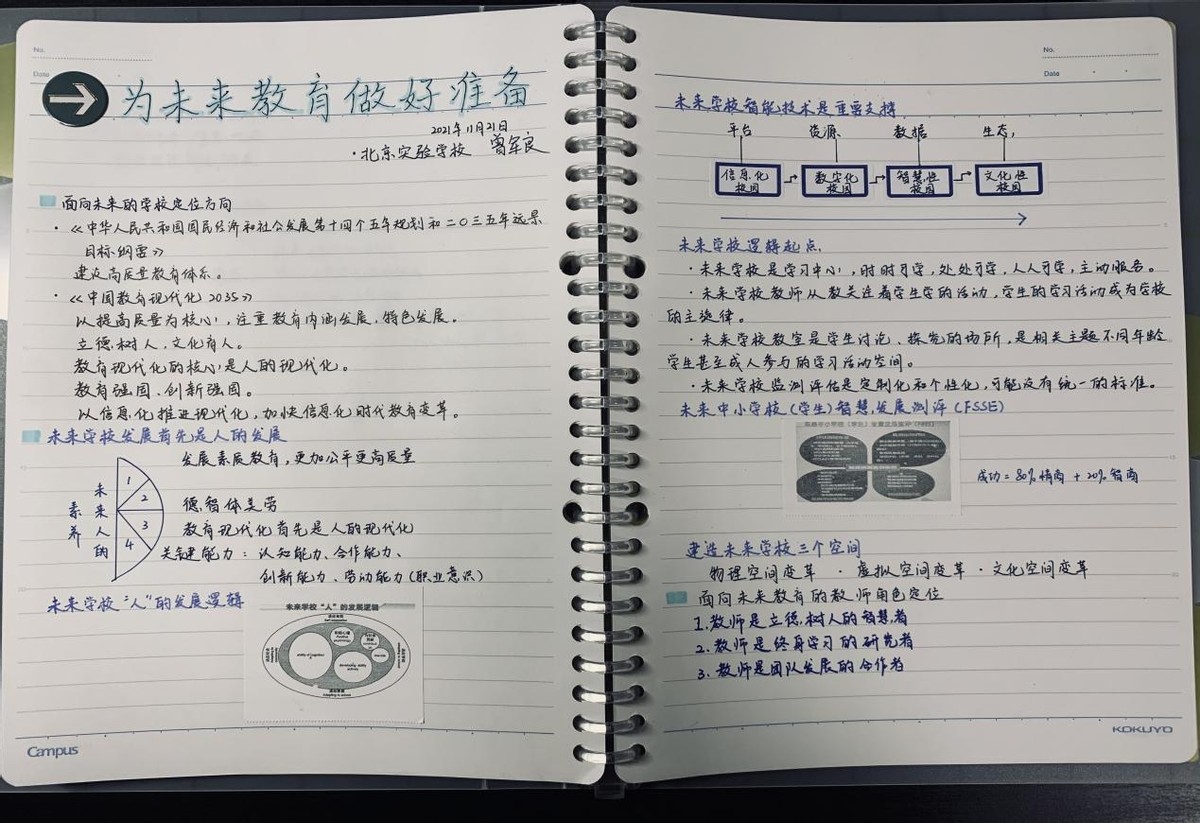 No.
Date
为未来教育做好准备
2021年11月21日
·北京实验学校 曾军良
面向未来的学校定位方向
·《中华人民共和国国民经济和社会发展第十四个五年规划和二〇三五年远景
目标纲要》
建设高质量教育体系。
·《中国教育现代化2035》
以提高质量为核心，注重教育内涵发展，特色发展。
立德树人，文化育人。
教育现代化的核心是人的现代化。
教育强国、创新强国。
以信息化推进现代化，加快信息化时代教育变革。
未来学校发展首先是人的发展
发展素质教育，更加公平更高质量
未来人的
素养
1
2
3
4
德智体美劳
教育现代化首先是人的现代化
关键能力：认知能力、合作能力、
创新能力、劳动能力(职业意识)
未来学校"人"的发展逻辑
未来学校"人"的发展逻辑
Campus
No.
Date
未来学校智能技术是重要支撑
平台 资源、 数据 生态，
信息化校园 数字化校园 智慧性校园 文化性校园
未来学校逻辑起点，
·未来学校是学习中心，时时可学，处处可学，人人可学，主动服务。
·未来学校教师从教关注着学生学的活动，学生的学习活动成为学校
的主旋律。
·未来学校教室是学生讨论、探究的场所，是相关主题不同年龄
学生甚至成人参与的学习活动空间。
·未来学校监测评估是定制化和个性化，可能没有统一的标准。
未来中小学校(学生)智慧发展测评(FSSE)
成功=80%情商+20%智商
建造未来学校三个空间
物理空间变革 ·虚拟空间变革 ·文化空间变革
面向未来教育的教师角色定位
1.教师是立德树人的智慧者
2.教师是终身学习的研究者
3.教师是团队发展的合作者
KOKUYO